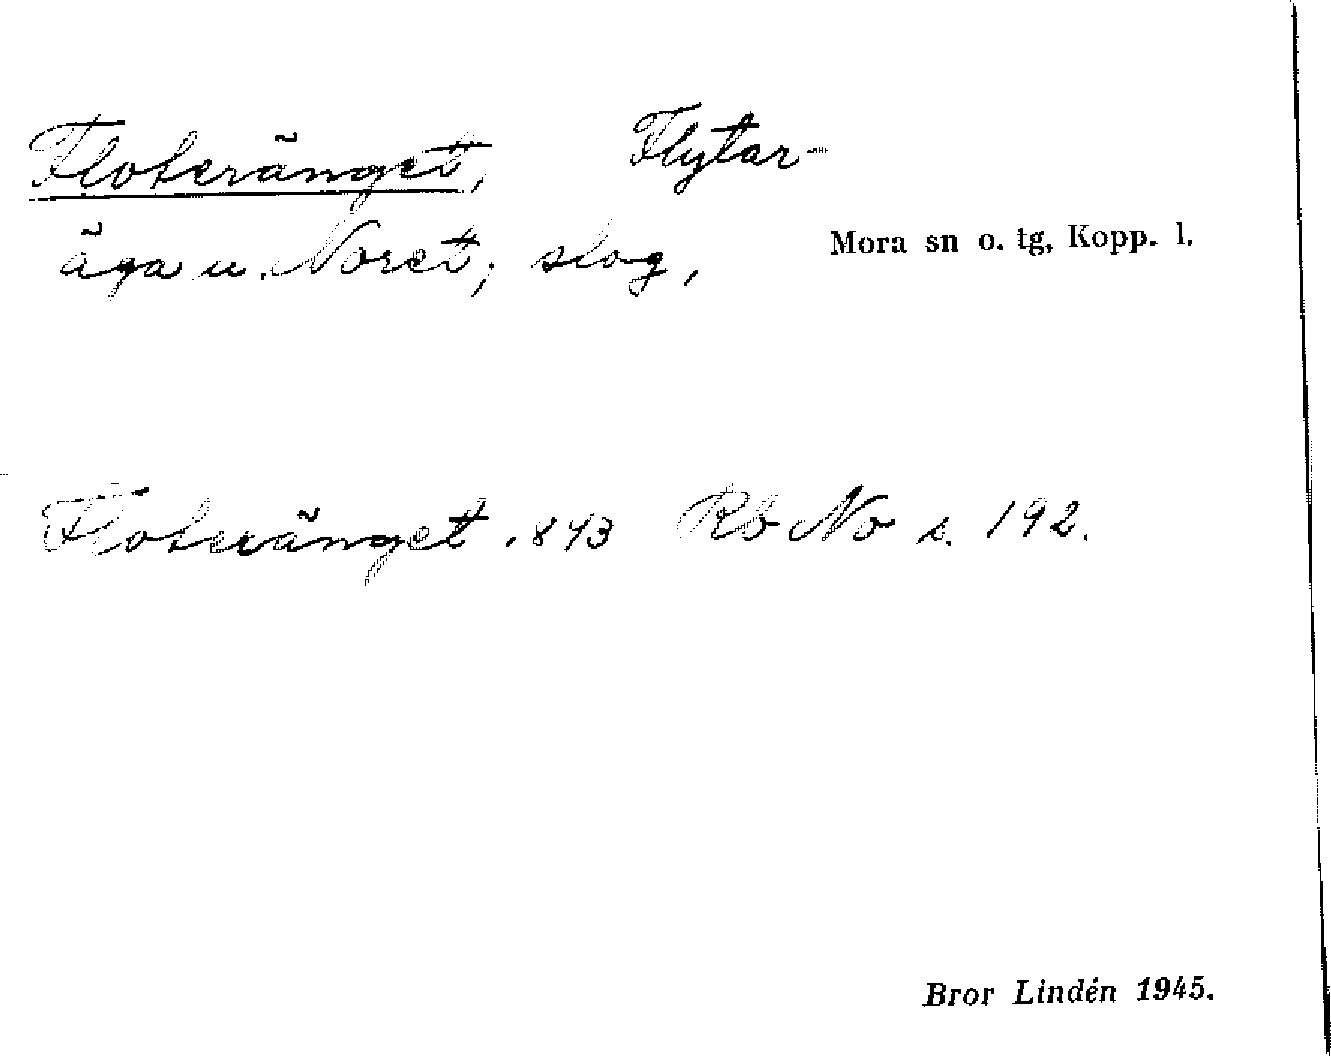 Floteränget, Flytar-
äga u. Noret; slog,
Mora sn o. tg, Kopp. l.
Floteränget. 843 Rb No s. 192.
Bror Lindén 1945.